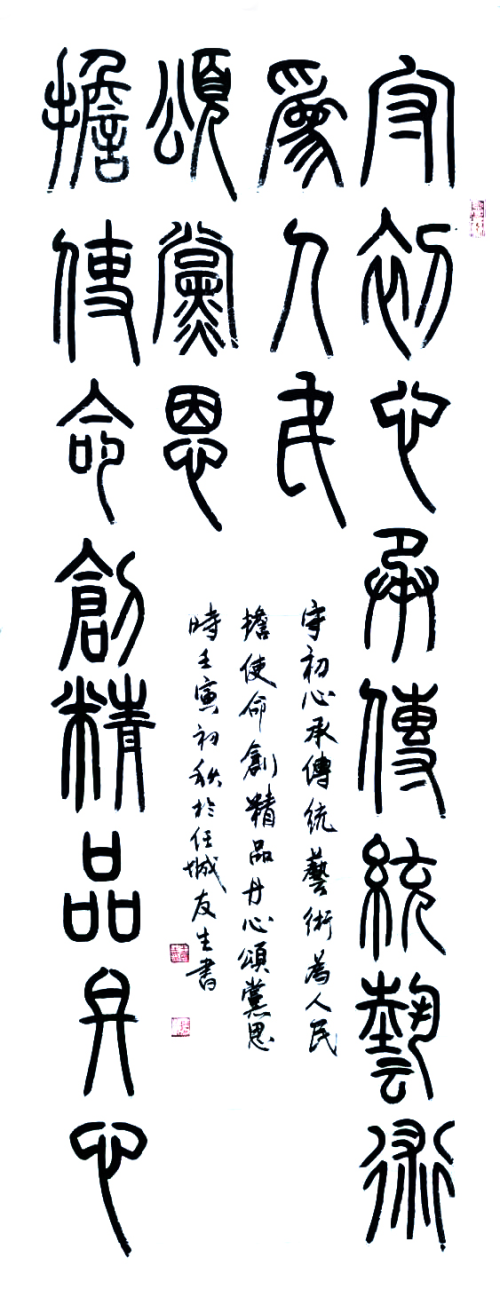 守初心承傳統藝術
為人民
擔使命創精品丹心
頌黨恩
守初心承傳統藝術為人民
擔使命創精品丹心頌黨恩
時壬寅初秋於任城友生書